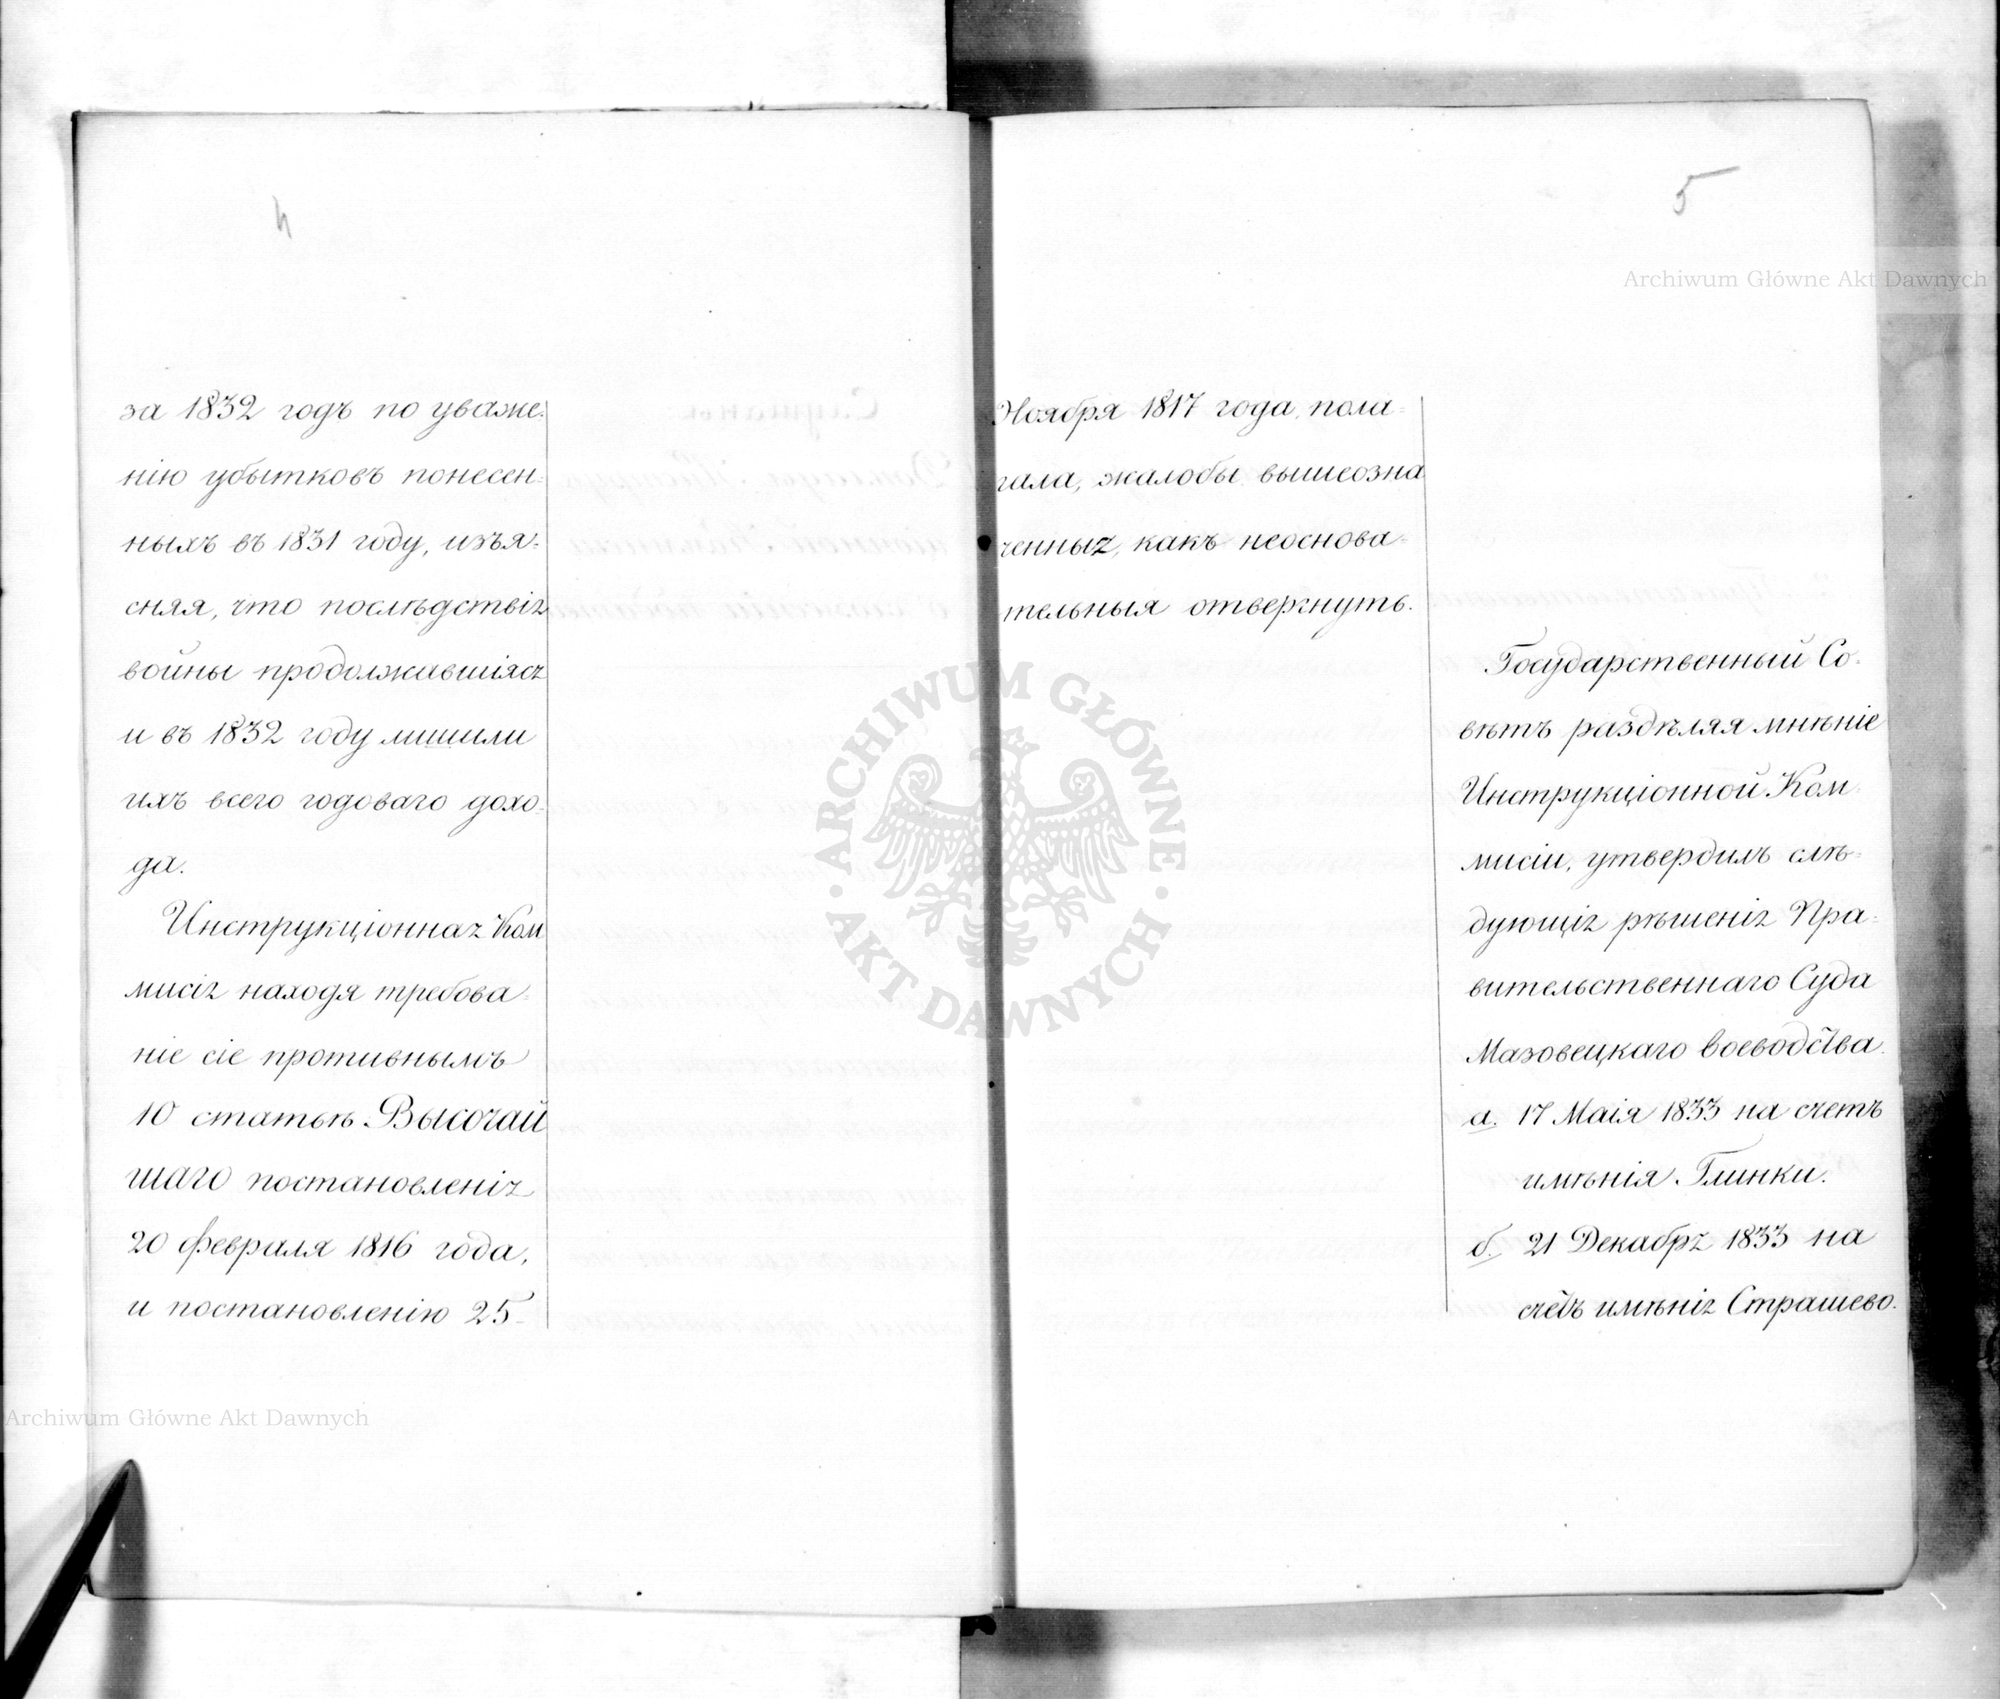 4
за 1832 годъ по уваже-
нію убытковъ понесен-
ныхъ въ 1831 году, изъя-
сняя, что послѣдствія
войны продолжавшіяся
и въ 1832 году лишили
ихъ всего годоваго дохо-
да.
Инструкціонная Ком
мисія находя требова-
ніе сіе противнымъ
10 статьѣ Высочай
шаго постановленія
20 февраля 1816 года,
и постановленію 25-
5
Ноября 1817 года, пола-
гала, жалобы вышеозна
ченныя, какъ неоснова-
тельныя отвергнуть.
Государственный Со-
вѣтъ раздѣляя мнѣніе
Инструкціонной Ком-
мисіи, утвердилъ слѣ-
дующія рѣшенія Пра-
вительственнаго Суда
Мазовецкаго воеводства.
а. 17 Маія 1833 на счетъ
имѣнія Глинки.
б. 21 Декабря 1833 на
счетъ имѣнія Страшево.
Archiwum Główne Akt Dawnych
ARCHIWUM GŁÓWNE AKT DAWNYCH
Archiwum Główne Akt Dawnych